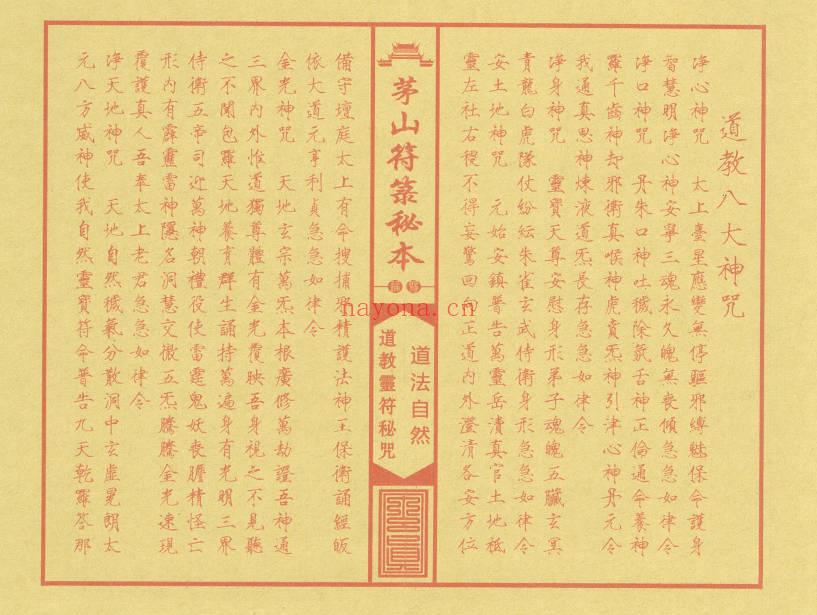 道教八大神咒
淨心神咒　太上臺星應變無停驅邪縛魅保命護身
智慧明淨心神安寧三魂永久魄無喪傾急急如律令
淨口神咒　丹朱口神吐穢除氛舌神正倫通命養神
羅千齒神却邪衛真喉神虎賁炁神引津心神丹元令
我通真思神煉液道炁長存急急如律令
淨身神咒　靈寶天尊安慰身形弟子魂魄五臟玄冥
青龍白虎隊仗紛紜朱雀玄武侍衛身形急急如律令
安土地神咒　元始安鎮普告萬靈岳瀆真官土地祗
靈左社右稷不得妄驚回向正道內外澄清各安方位
茅山符箓秘本
道法自然
道教靈符秘咒
nayona.cn
備守壇庭太上有命搜捕邪精護法神王保衛誦經皈
依大道元亨利貞急急如律令
金光神咒　天地玄宗萬炁本根廣修萬劫證吾神通
三界內外惟道獨尊體有金光覆映吾身視之不見聽
之不聞包羅天地養育群生誦持萬遍身有光明三界
侍衛五帝司迎萬神朝禮役使雷霆鬼妖喪膽精怪亡
形內有霹靂雷神隱名洞慧交徹五炁騰騰金光速現
覆護真人吾奉太上老君急急如律令
淨天地神咒　天地自然穢氣分散洞中玄虛晃朗太
元八方威神使我自然靈寶符命普告九天乾羅答那